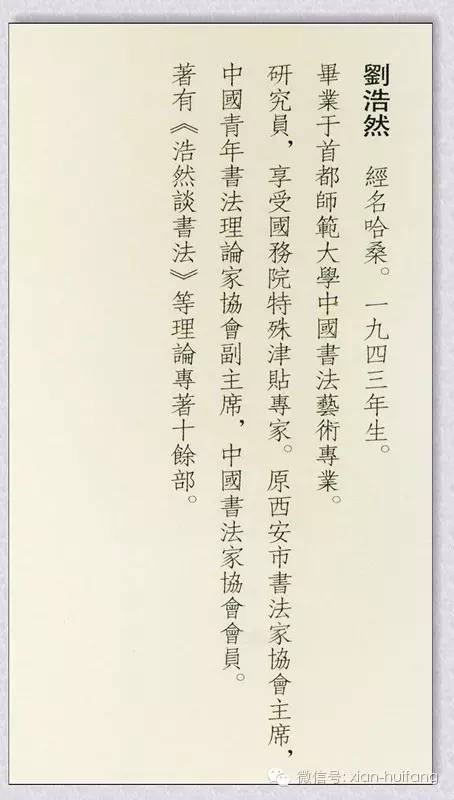 劉浩然　經名哈桑。一九四三年生。
畢業于首都師範大學中國書法藝術專業。
研究員，享受國務院特殊津貼專家。原西安市書法家協會主席，
中國青年書法理論家協會副主席，中國書法家協會會員。
著有《浩然談書法》等理論專著十餘部。
微信号: xian-huifang